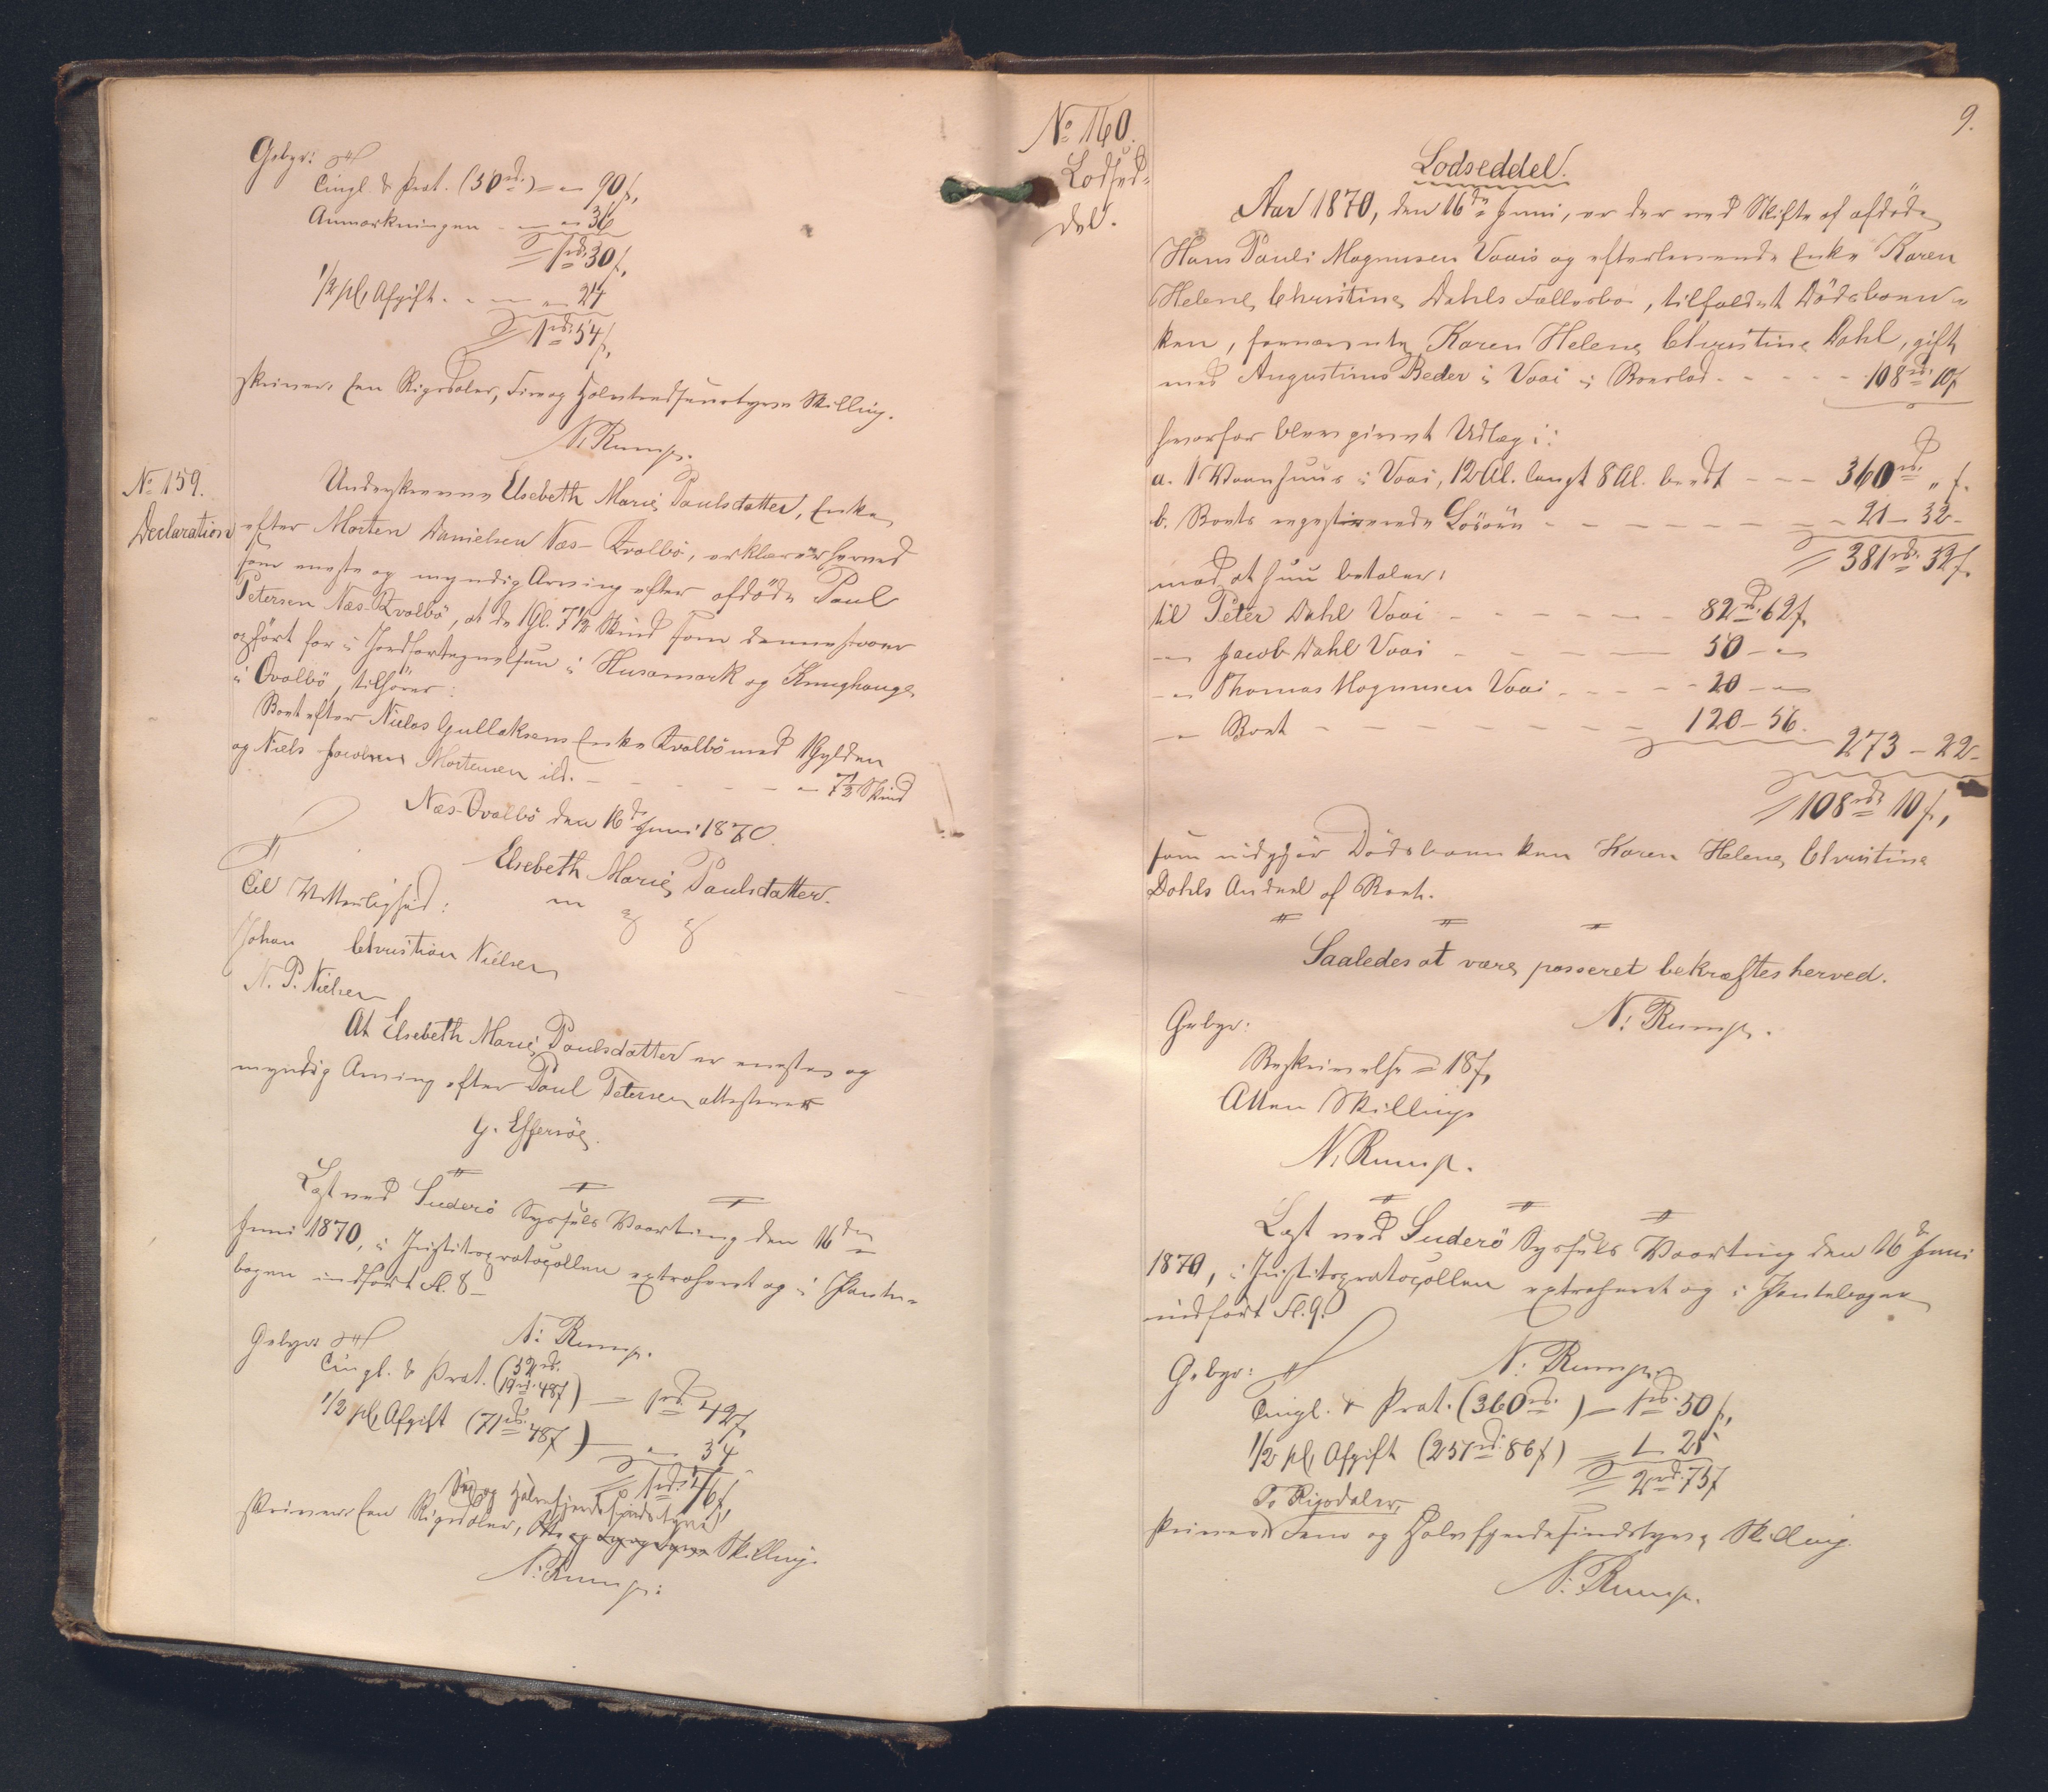 Gebyr:
Tingl. & Prot. (50rd.) = " 90 ß,
Anmærkningen - — " 36
1rd. 30 ß,
1/2 pCt Afgift. - — " 24
1rd. 54 ß,
skriver: Een Rigsdaler, Fire og Halvtredsindstyve Skilling.
N. Rump.
No 159.
Declaration
Underskrevne Elsebeth Marie Paulsdatter, Enke
efter Morten Danielsen Næs-Qvalbö, erklærer herved
som eneste og myndig Arving efter afdöde Paul
Petersen Næs-Qvalbö, at de 1 Gl. 7 1/2 Skind som denne staaer
opfört for i Jordfortegnelsen i Husamark og Knughauge
i Qvalbö, tilhörer:
Boet efter Niclas Gullaksens Enke Qvalbö med 1 Gylden
og Niels Jacobsen Mortensen ibd. - - - - - " 7 1/2 Skind
Næs-Qvalbö den 16de Juni 1870.
Elsebeth Marie Paulsdatter.
Til Vitterlighed: m
Johan Christian Nielsen
N. P. Nielsen
At Elsebeth Marie Paulsdatter er eneste og
myndig Arving efter Paul Petersen attesteres
G. Effersöe.
Læst ved Suderö Syssels Vaarting den 16den
Juni 1870, i Justitsprotocollen extraheret og i Pante-
bogen indfört Fl. 8-
N: Rump.
Gebyr:
Tingl. & Prot. (52rd. 19rd. 48ß) — 1rd. 42ß,
1/2 pCt Afgift (71rd. 48ß) — " 34
1rd. 76 ß,
Sex og Halvfjerdsindstyve
skriver Een Rigsdaler, Skilling.
N: Rump:
No 160.
Lodsed-
del.
9.
Lodseddel.
Aar 1870, den 16de Juni, er der ved Skifte af afdöde
Hans Pauli Magnusen Vaais og efterlevende Enke Karen
Helene Christine Dahls Fællesbo, tilfaldet Dödsboen-
ken, fornævnte Karen Helene Christine Dahl, gift
med Augustinus Beder i Vaai i Boeslod - - - - - 108rd. 10ß
hvorfor blev givet Udlæg i:
a. 1 Vaanhuus i Vaai, 12 Al. langt 8 Al. bredt - - - 360rd. " ß.
b. Boets registrerede Lösöre - - - - - - - - 21 - 32 -
381rd. 32ß.
mod at hun betaler:
til Peter Dahl Vaai - - - - - - 82rd. 62ß.
- " Jacob Dahl Vaai - - - - - 50 - "
- " Thomas Magnusen Vaai - - - - 20 - "
- " Boet - - - - - - - - 120 - 56.
273 - 22 -
108rd. 10 ß,
som udgjör Dödsboenken Karen Helene Christine
Dahls Andeel af Boet.
Saaledes at være passeret bekræftes herved.
N: Rump.
Gebyr:
Beskrivelse = 18ß,
Atten Skilling
N. Rump.
Læst ved Suderö Syssels Vaarting den 16de Juni
1870, i Justitsprotocollen extraheret og i Pantebogen
indfört Fl. 9.
N: Rump.
Gebyr:
Tingl. & Prot. (360rd.) — 1rd. 50 ß,
1/2 pCt Afgift (251rd. 86ß) = 1 - 25
2rd. 75ß
To Rigsdaler,
skriver Fem og Halvfjerdesindstyve Skilling.
N: Rump.